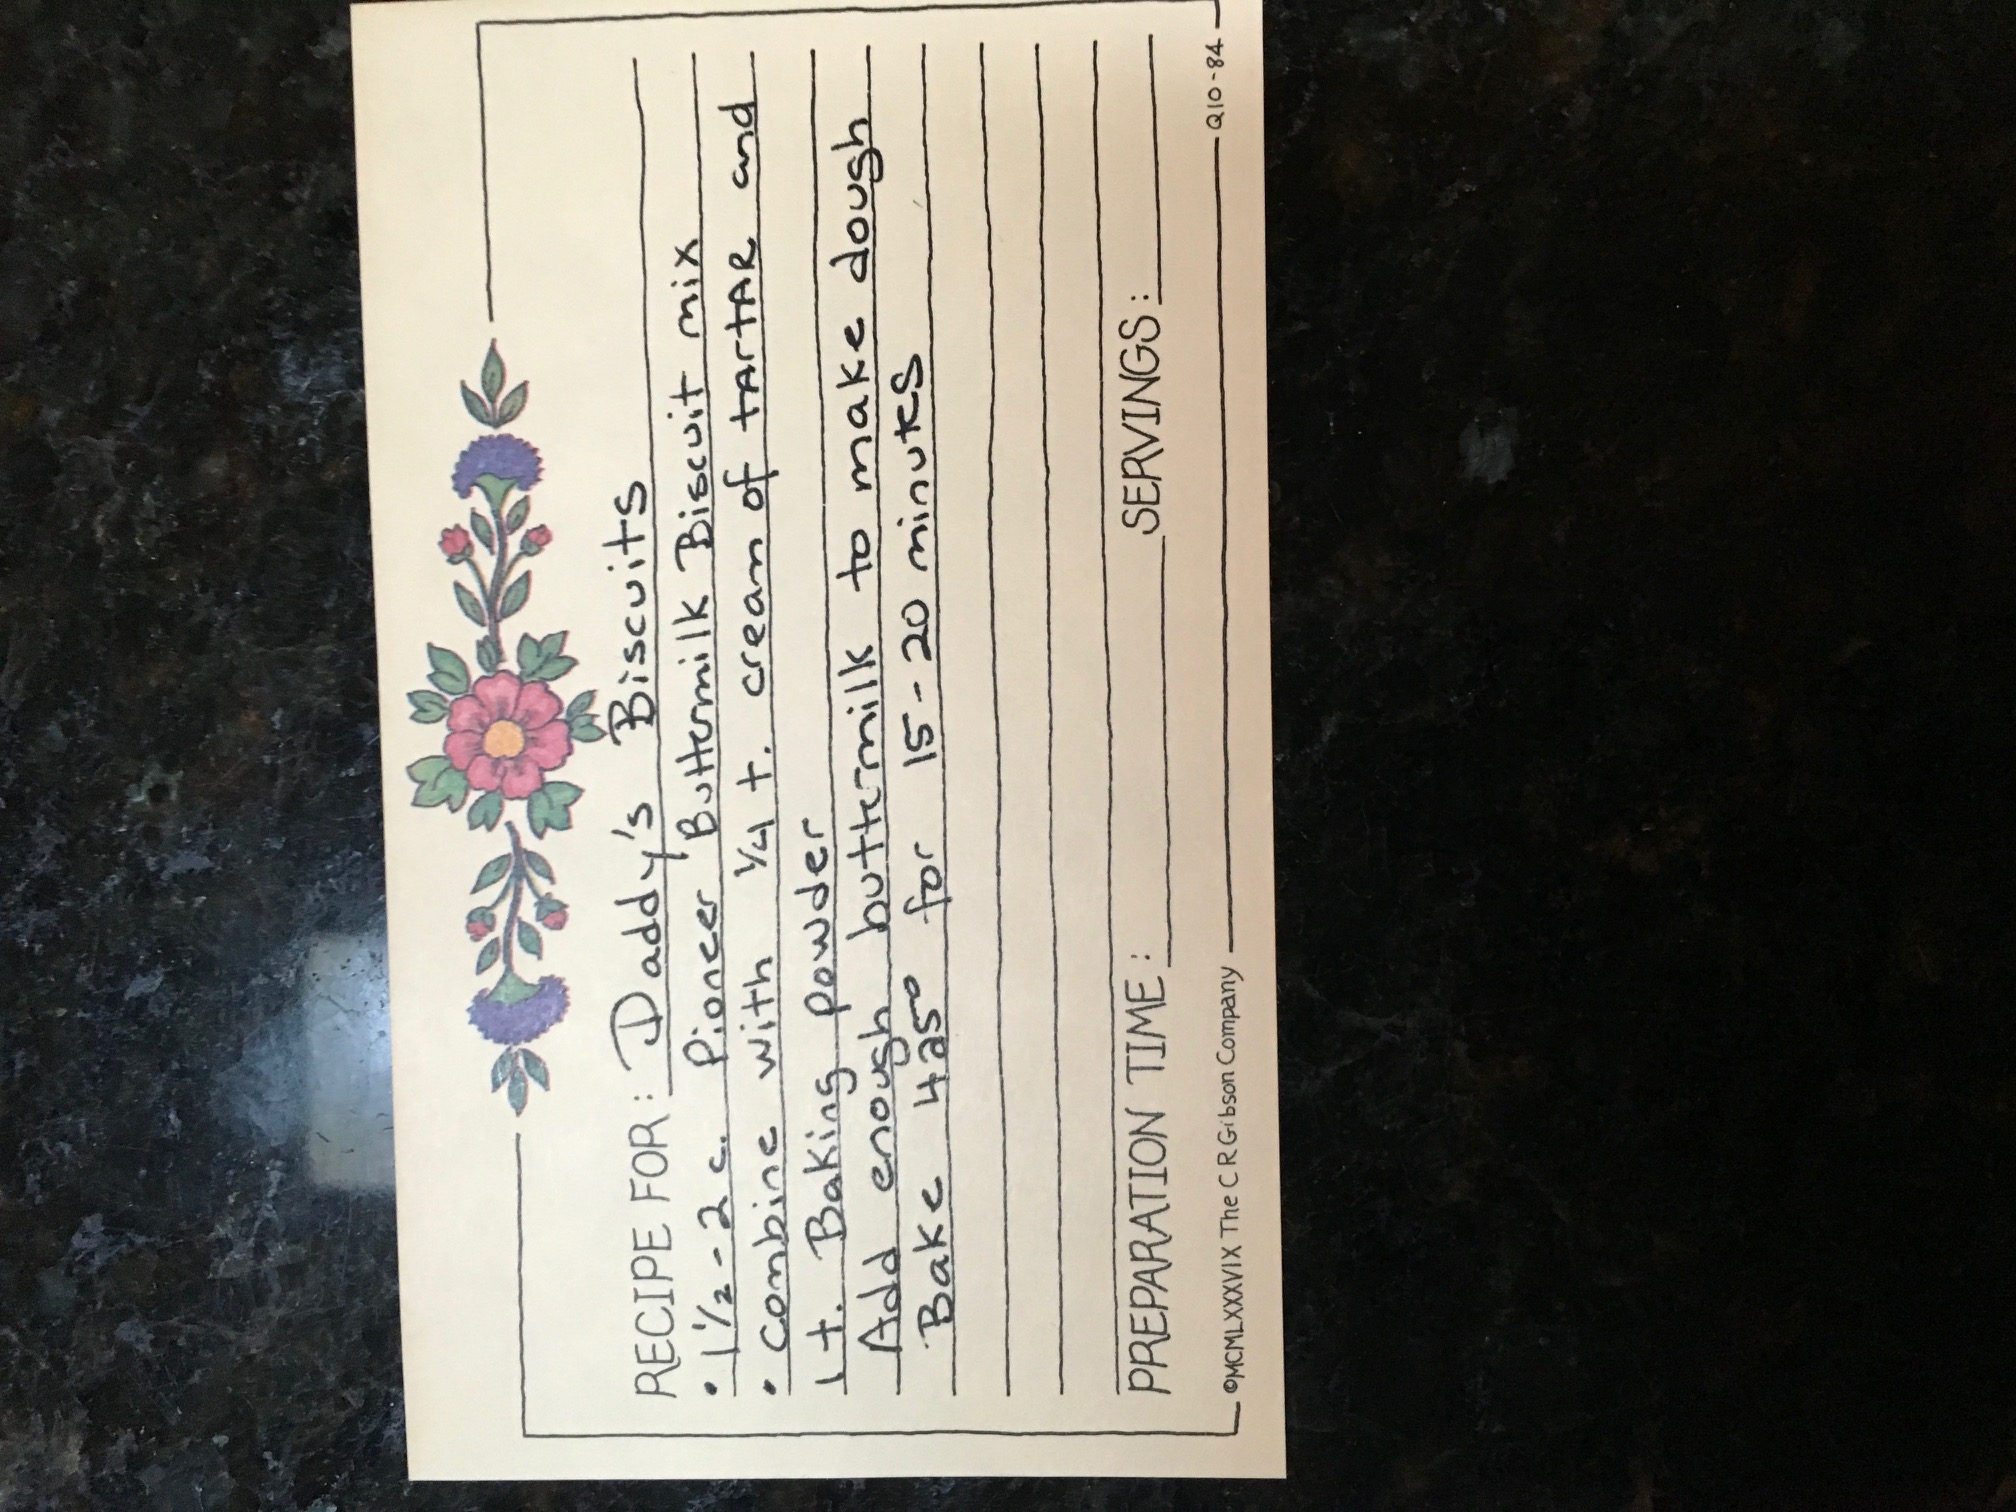 RECIPE FOR: Daddy's Biscuits
• 1 1/2 - 2 c. Pioneer Buttermilk Biscuit mix
• combine with 1/4 t. cream of tArtAR and
1 t. Baking powder
Add enough buttermilk to make dough
Bake 425° for 15-20 minutes
PREPARATION TIME: SERVINGS:
©MCMLXXXVIX The C R Gibson Company Q10-84